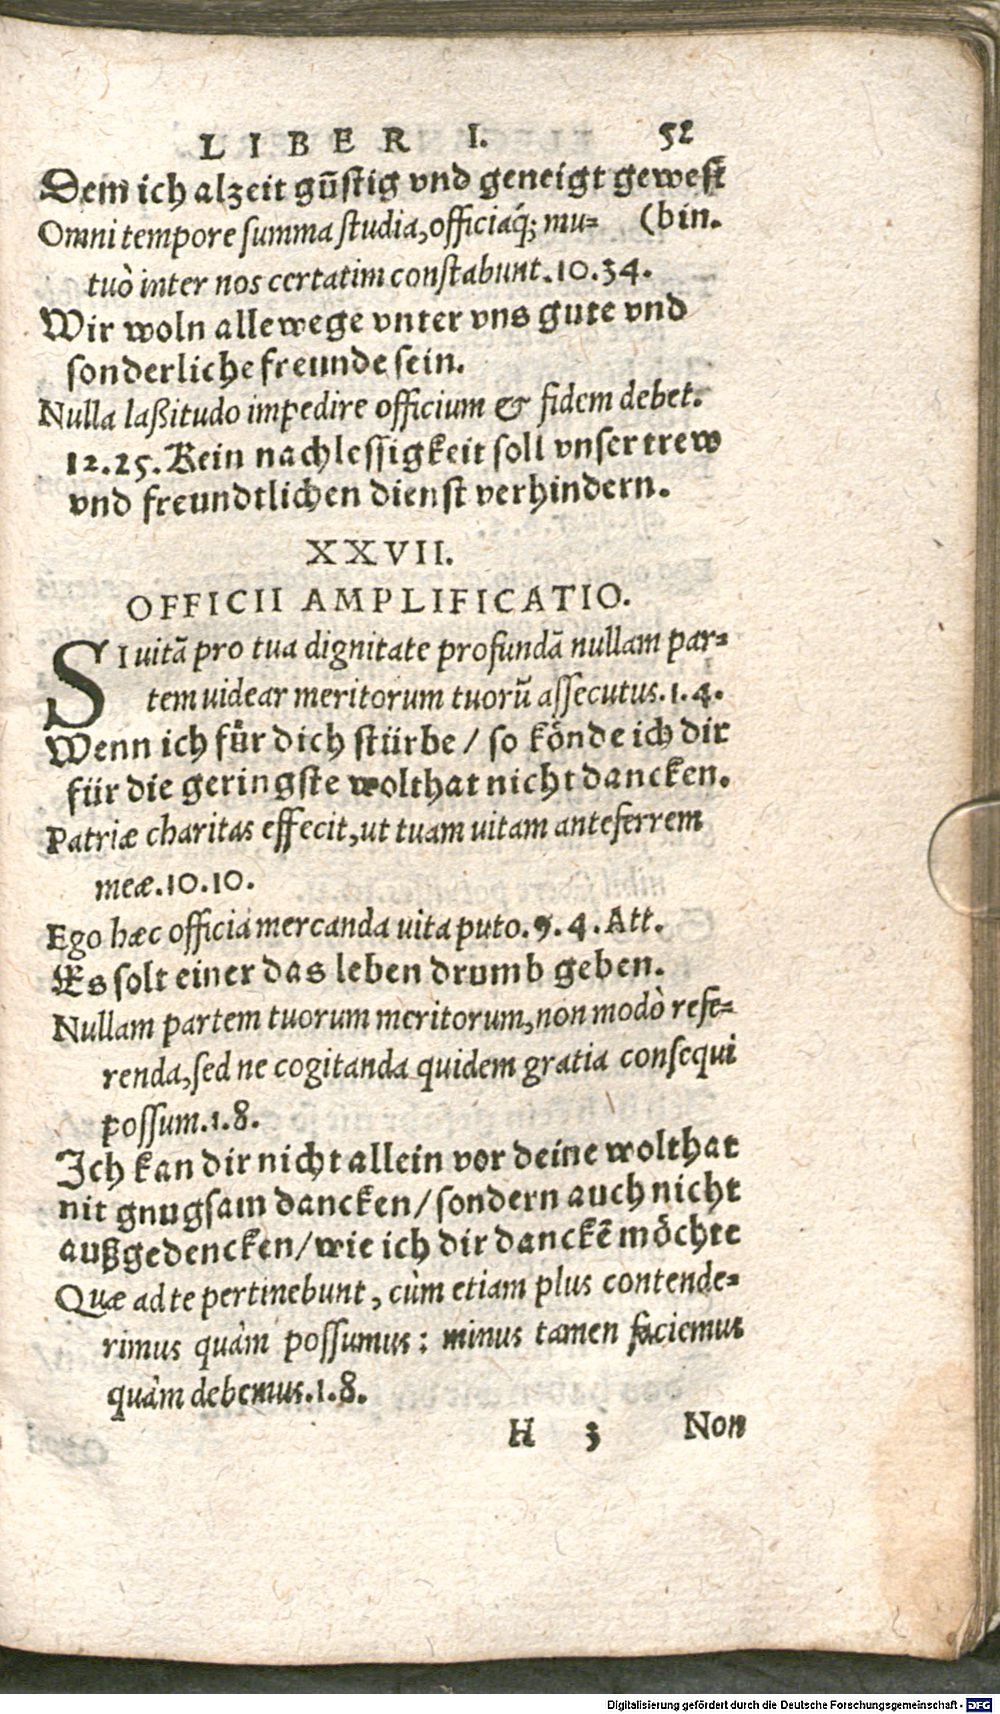 LIBER I. 52
Dem ich alzeit gūstig vnd geneigt gewest
Omni tempore summa studia, officiaq́; mu- (bin.
tuò inter nos certatim constabunt. 10. 34.
Wir woln allewege vnter vns gute vnd
sonderliche freunde sein.
Nulla laßitudo impedire officium & fidem debet.
12. 25. Kein nachlessigkeit soll vnser trew
vnd freundtlichen dienst verhindern.
XXVII.
OFFICII AMPLIFICATIO.
SI uitā pro tua dignitate profundā nullam par-
tem uidear meritorum tuorū assecutus. 1. 4.
Wenn ich für dich stürbe / so könde ich dir
für die geringste wolthat nicht dancken.
Patriæ charitas effecit, ut tuam uitam anteferrem
meæ. 10. 10.
Ego hæc officia mercanda uita puto. 9. 4. Att.
Es solt einer das leben drumb geben.
Nullam partem tuorum meritorum, non modò refe-
renda, sed ne cogitanda quidem gratia consequi
possum. 1. 8.
Ich kan dir nicht allein vor deine wolthat
nit gnugsam dancken / sondern auch nicht
außgedencken / wie ich dir danckē möchte
Quæ ad te pertinebunt, cùm etiam plus contende-
rimus quàm possumus: minus tamen faciemus
quàm debemus. 1. 8.
H 3 Non
Digitalisierung gefördert durch die Deutsche Forschungsgemeinschaft - DFG